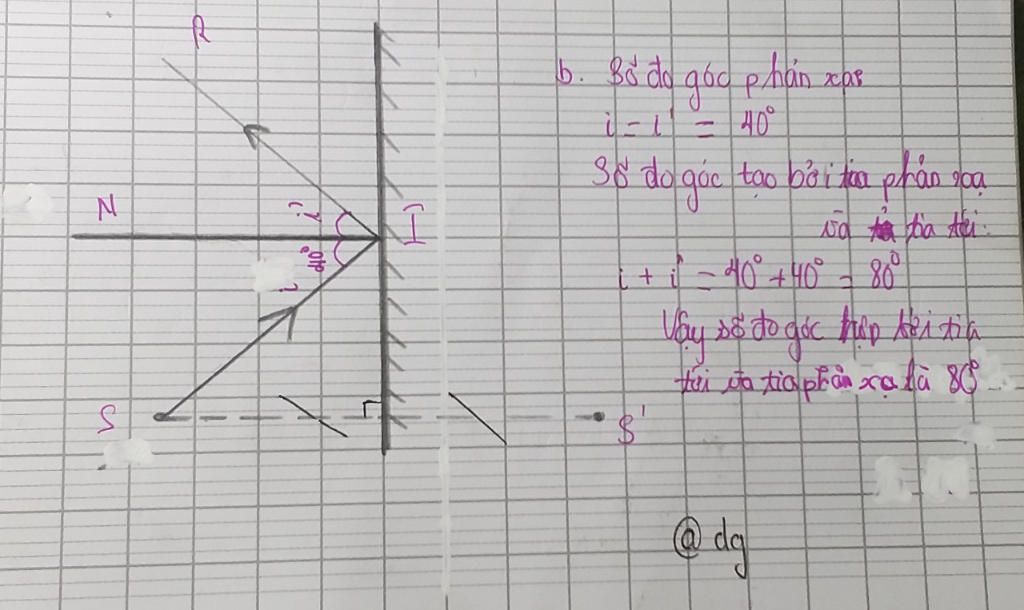 R
N
I
i'
40°
i
S
S'
b. Số đo góc phản xạ:
i = i' = 40°
Số đo góc tạo bởi tia phản xạ
và tia tới:
i + i' = 40° + 40° = 80°
Vậy số đo góc hợp bởi tia
tới và tia phản xạ là 80°
@ dg